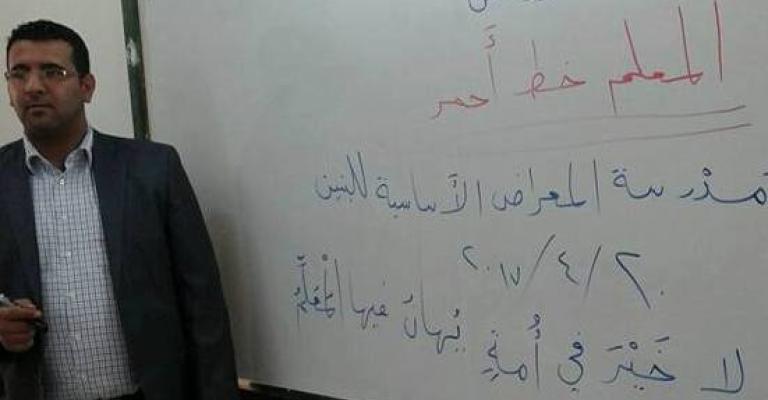 المعلم خط أَحمر
مدْرسة المعراض الأساسية للبنين
٢٠/٤/٢٠١٧
لا خَيْرَ في أُمةٍ يُهانُ فيها المُعَلِّمُ